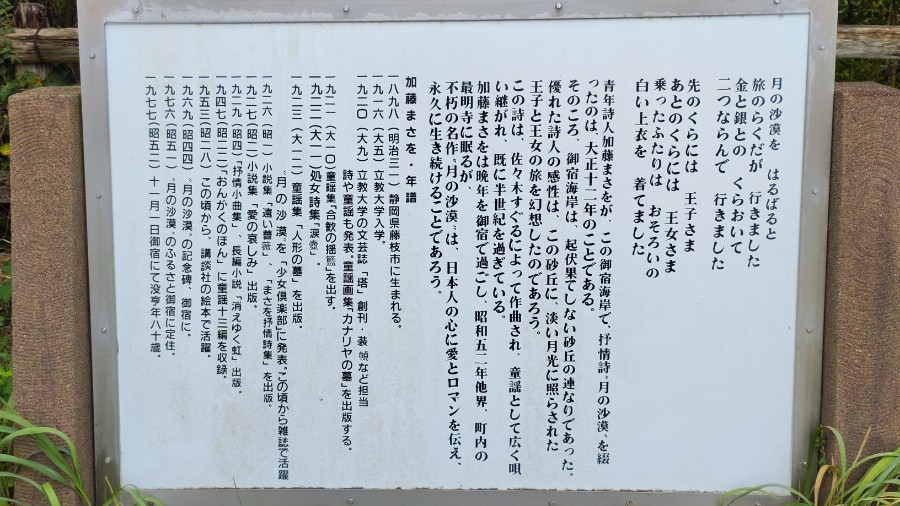 月の沙漠を　はるばると
旅のらくだが　行きました
金と銀との　くらおいて
二つならんで　行きました
先のくらには　王子さま
あとのくらには　王女さま
乗ったふたりは　おそろいの
白い上衣を　着てました
青年詩人加藤まさをが、この御宿海岸で、抒情詩〝月の沙漠〟を綴
ったのは、大正十二年のことである。
そのころ、御宿海岸は、起伏果てしない砂丘の連なりであった。
優れた詩人の感性は、この砂丘に、淡い月光に照らされた
王子と王女の旅を幻想したのであろう。
この詩は、佐々木すぐるによって作曲され、童謡として広く唄
い継がれ、既に半世紀を過ぎている。
加藤まさをは晩年を御宿で過ごし、昭和五二年他界、町内の
最明寺に眠るが、
不朽の名作〝月の沙漠〟は、日本人の心に愛とロマンを伝え、
永久に生き続けることであろう。
加藤まさを・年譜
一八九八（明治三一）静岡県藤枝市に生まれる。
一九一六（大五）立教大学入学。
一九二〇（大九）立教大学の文芸誌「塔」創刊・装幀など担当
詩や童謡も発表。童謡画集「カナリヤの墓」を出版する。
一九二一（大一〇）童謡集「合歓の揺籃」を出す。
一九二二（大一一）処女詩集「涙壺」。
一九二三（大一二）童謡集「人形の墓」を出版。
〝月の沙漠〟を「少女倶楽部」に発表。この頃から雑誌で活躍
一九二六（昭一）小説集「遠い薔薇」、「まさを抒情詩集」を出版．
一九二七（昭二）小説集「愛の哀しみ」出版．
一九二九（昭四）「抒情小曲集」、長編小説「消えゆく虹」出版．
一九四七（昭二二）「おんがくのほん」に童謡十三編を収録．
一九五三（昭二八）この頃から、講談社の絵本で活躍．
一九六九（昭四四）〝月の沙漠〟の記念碑、御宿に．
一九七六（昭五一）〝月の沙漠〟のふるさと御宿に定住．
一九七七（昭五二）十一月一日御宿にて没享年八十歳．